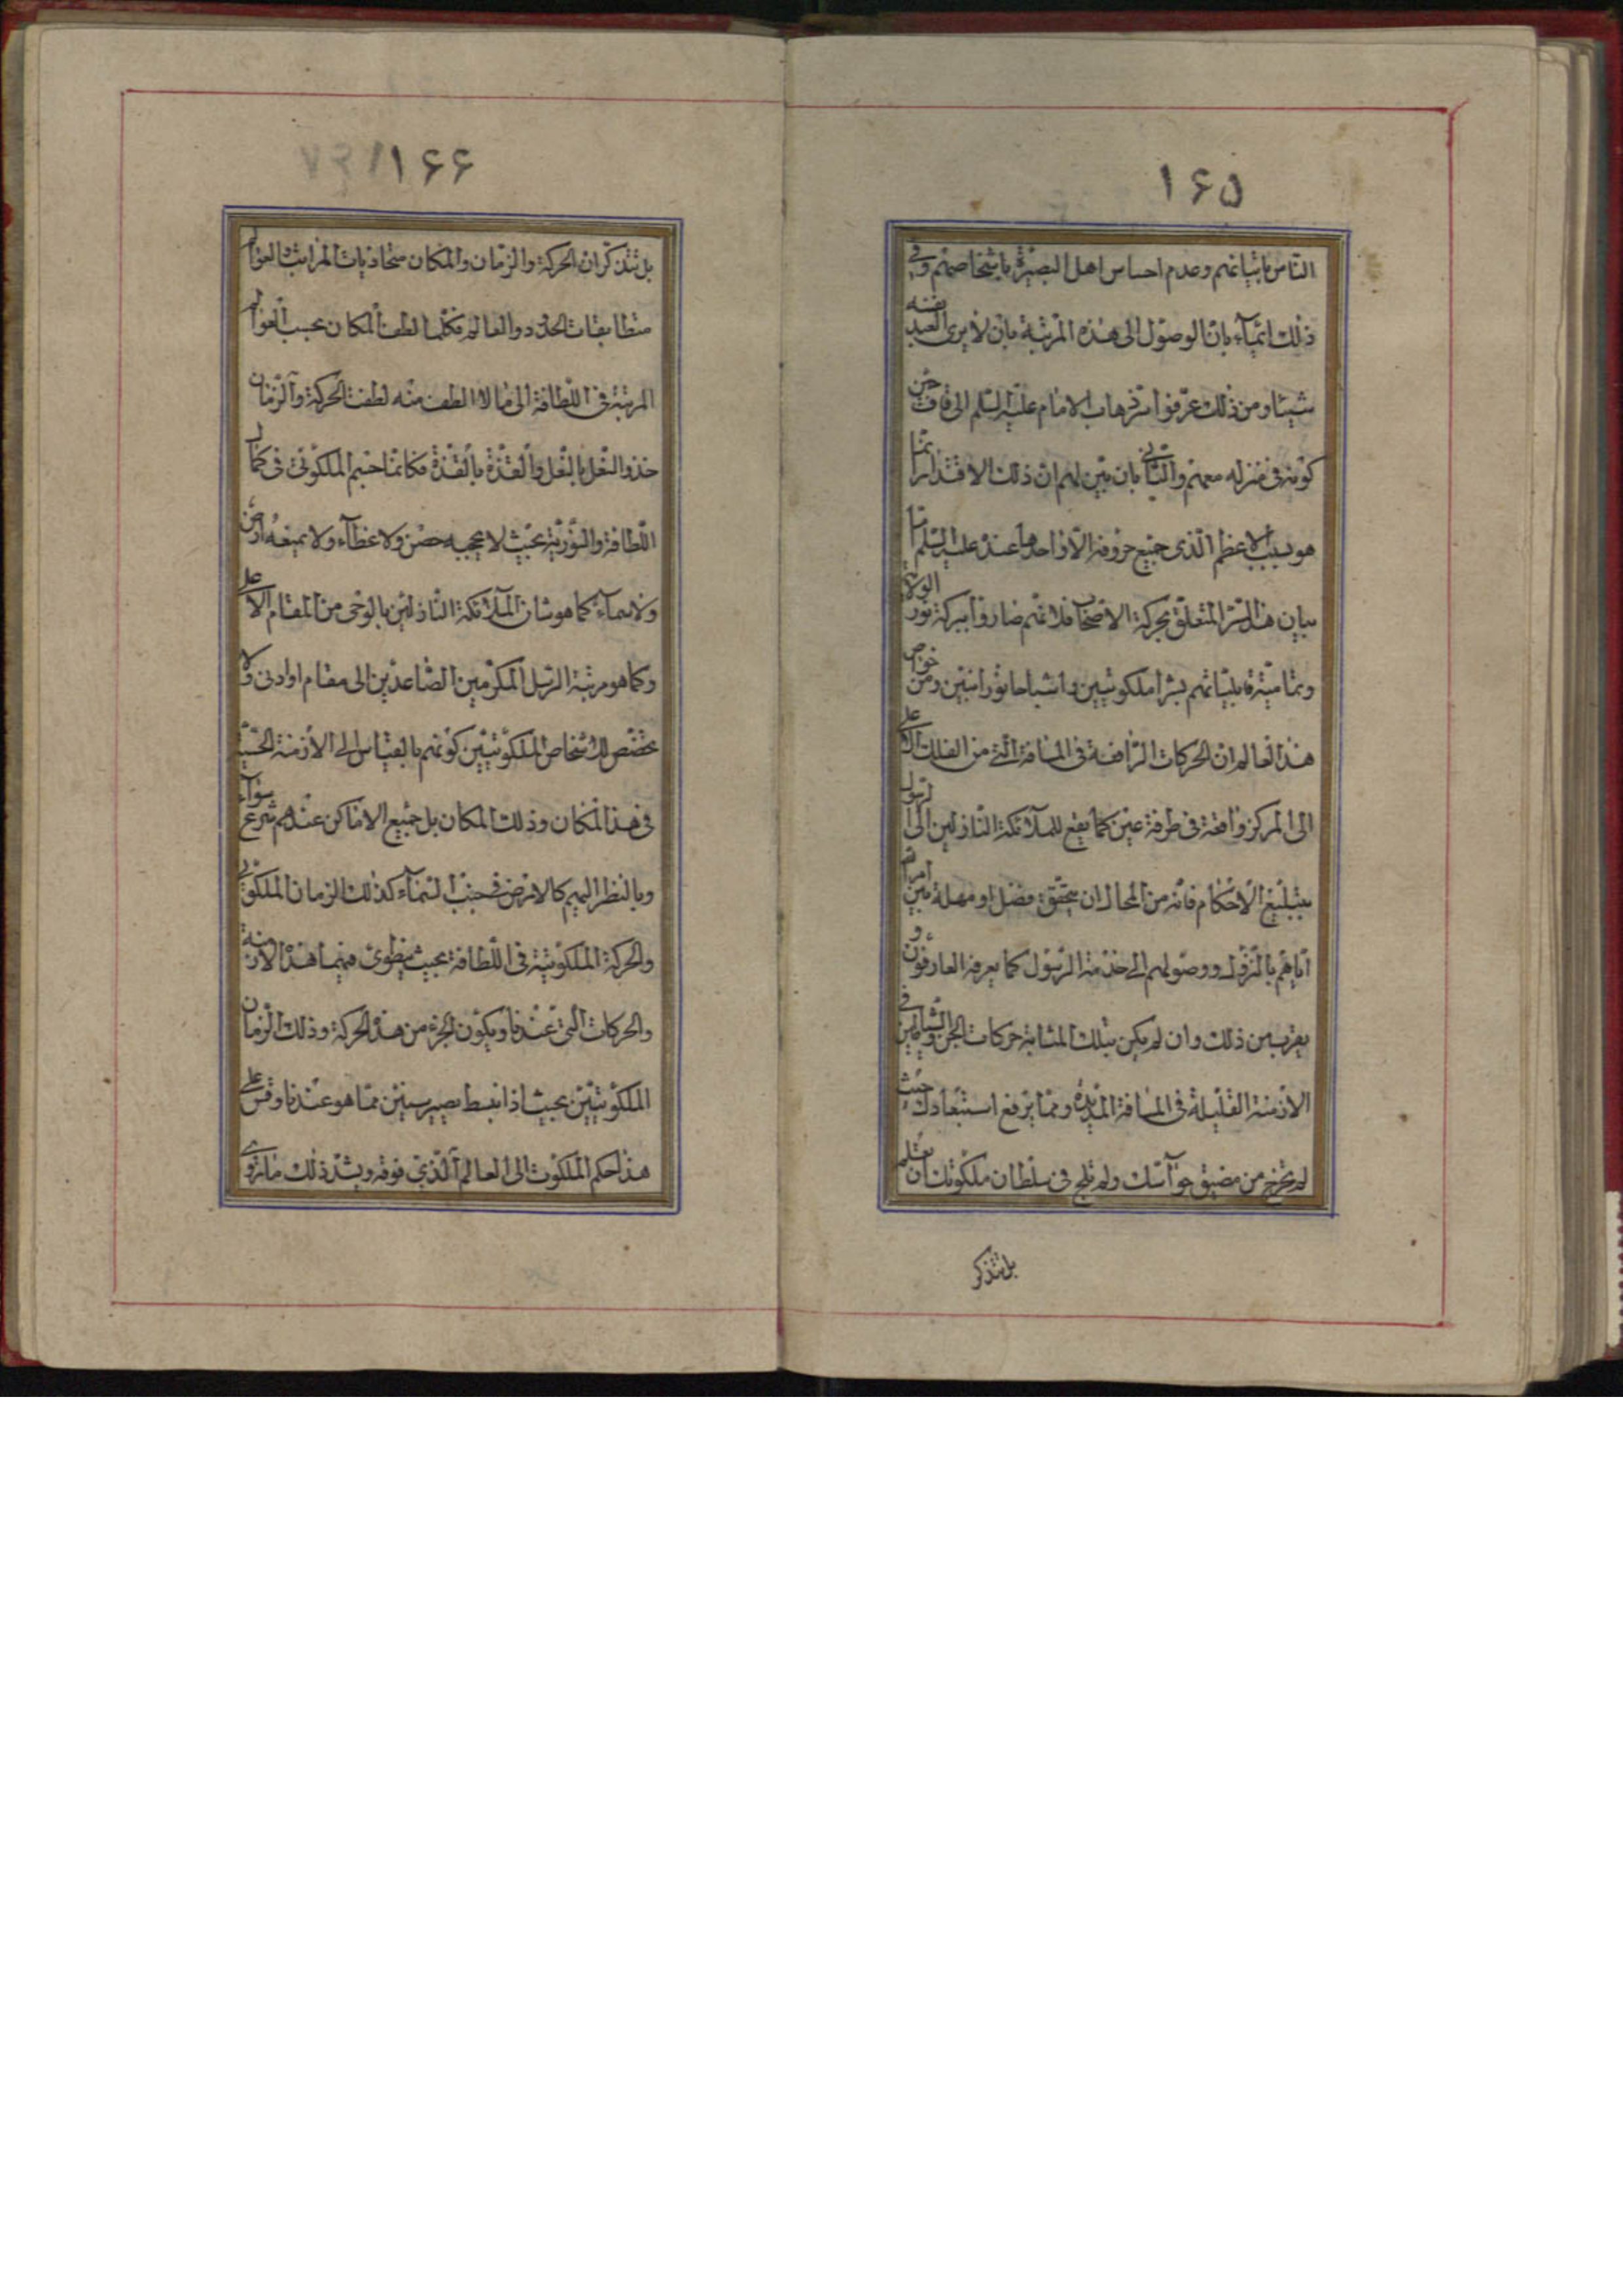 ۱۶۵
الناس باتیانهم وعدم احساس اهل البصیرة باشخاصهم وفی
ذلک ایماء بان الوصول الی هذه المرتبة بان لا یری العبد نفسه
شیئا ومن ذلک عرفوا سر ذهاب الامام علیه السلم الی قاف حین
کونه فی منزله معهم والثانی بان بین لهم ان ذلک الاقتدار انما
هو بسبب الاعظم الذی جمیع حروفه الا واحدها عنده علیه السلم
بیان هذا السر المتعلق بحرکة الاصحاب فلانهم صاروا ببرکة نور الولایة
وتمامیة قابلیاتهم بشرا ملکوتیین واشباحا نورانیین ومن خواص
هذا العالم ان الحرکات الواقعة فی المسافة التی من الفلک الاعلی
الی المرکز واقعة فی طرفة عین کما یقع للملائکة النازلین الی الرسول
بتبلیغ الاحکام فانه من المحال ان یتحقق فصل او مهلة بین امره
ایاهم بالنزول ووصولهم الی خدمة الرسول کما یعرفه العارفون و
یقرب من ذلک وان لم یکن بتلک المثابة حرکات الجن والشیاطین فی
الازمنة القلیلة فی المسافة المدیدة ومما یرفع استبعادک حیث
لم تخرج من مضیق حواسک ولم تلج فی سلطان ملکوتک ان تعلم
بل تتذکر
۱۶۶
بل تتذکر ان الحرکة والزمان والمکان متحاذیات المراتب والعوالم
متطابقات الحدود والعالم فکلما لطف المکان بحسب العوالم
المرتبة فی اللطافة الی ما لا الطف منه لطفت الحرکة والزمان
حذو النعل بالنعل والقذة بالقذة فکانما جسم الملکوتی فی کمال
اللطافة والنوریة بحیث لا یحجبه حصن ولا غطاء ولا یمنعه ارض
ولا سماء کما هو شان الملائکة النازلین بالوحی من المقام الاعلی
وکما هو مرتبة الرسل المکرمین الصاعدین الی مقام او ادنی ولا
یختص الاشخاص الملکوتیین کونهم بالقیاس الی الازمنة الحسیة
فی هذا المکان وذلک المکان بل جمیع الاماکن عندهم شرع سواء
وبالنظر الیهم کالارض فی جنب السماء کذلک الزمان الملکوتی
والحرکة الملکوتیة فی اللطافة بحیث ینطوی فیهما هذه الازمنة
والحرکات التی عندنا ویکون الجزء من هذه الحرکة وذلک الزمان
الملکوتیین بحیث اذا انبسط یصیر سنین مما هو عندنا وقس علی
هذا حکم الملکوت الی العالم الذی فوقه ویشد ذلک ما روی